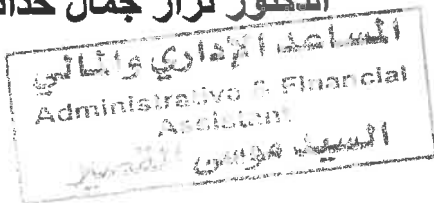 الدكتور نزار جمال حداد
المساعد الإداري والمالي
Administrative & Financial
Assistant
السيد موسى